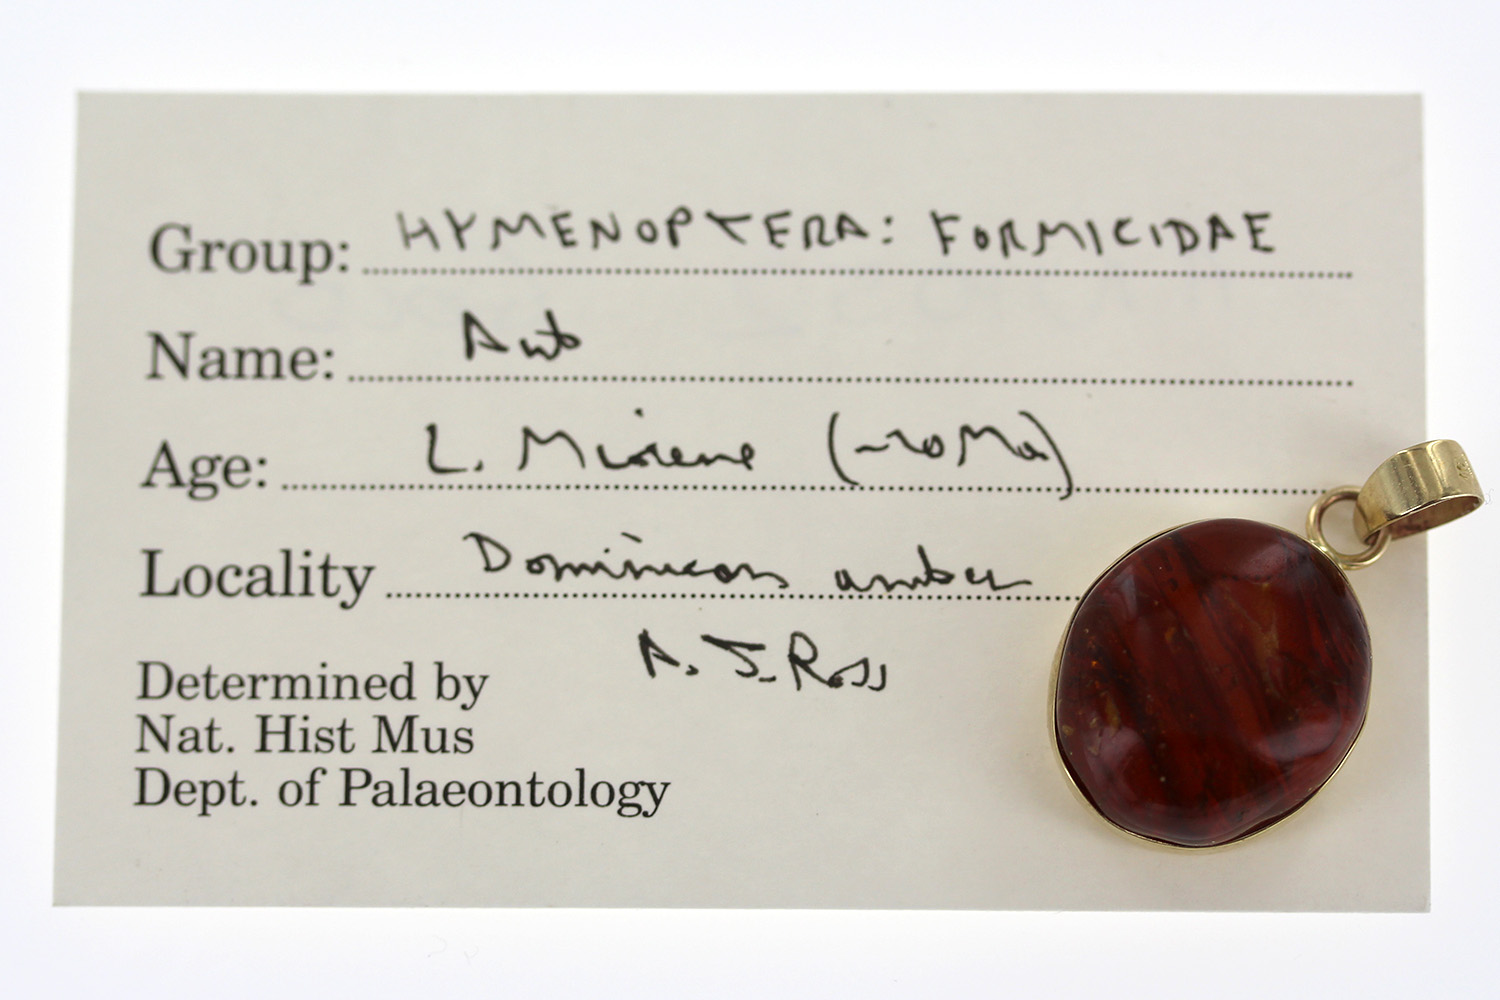 Group: HYMENOPTERA: FORMICIDAE
Name: Ant
Age: L. Miocene (~20Ma)
Locality Dominican amber
A. J. Ross
Determined by
Nat. Hist Mus
Dept. of Palaeontology